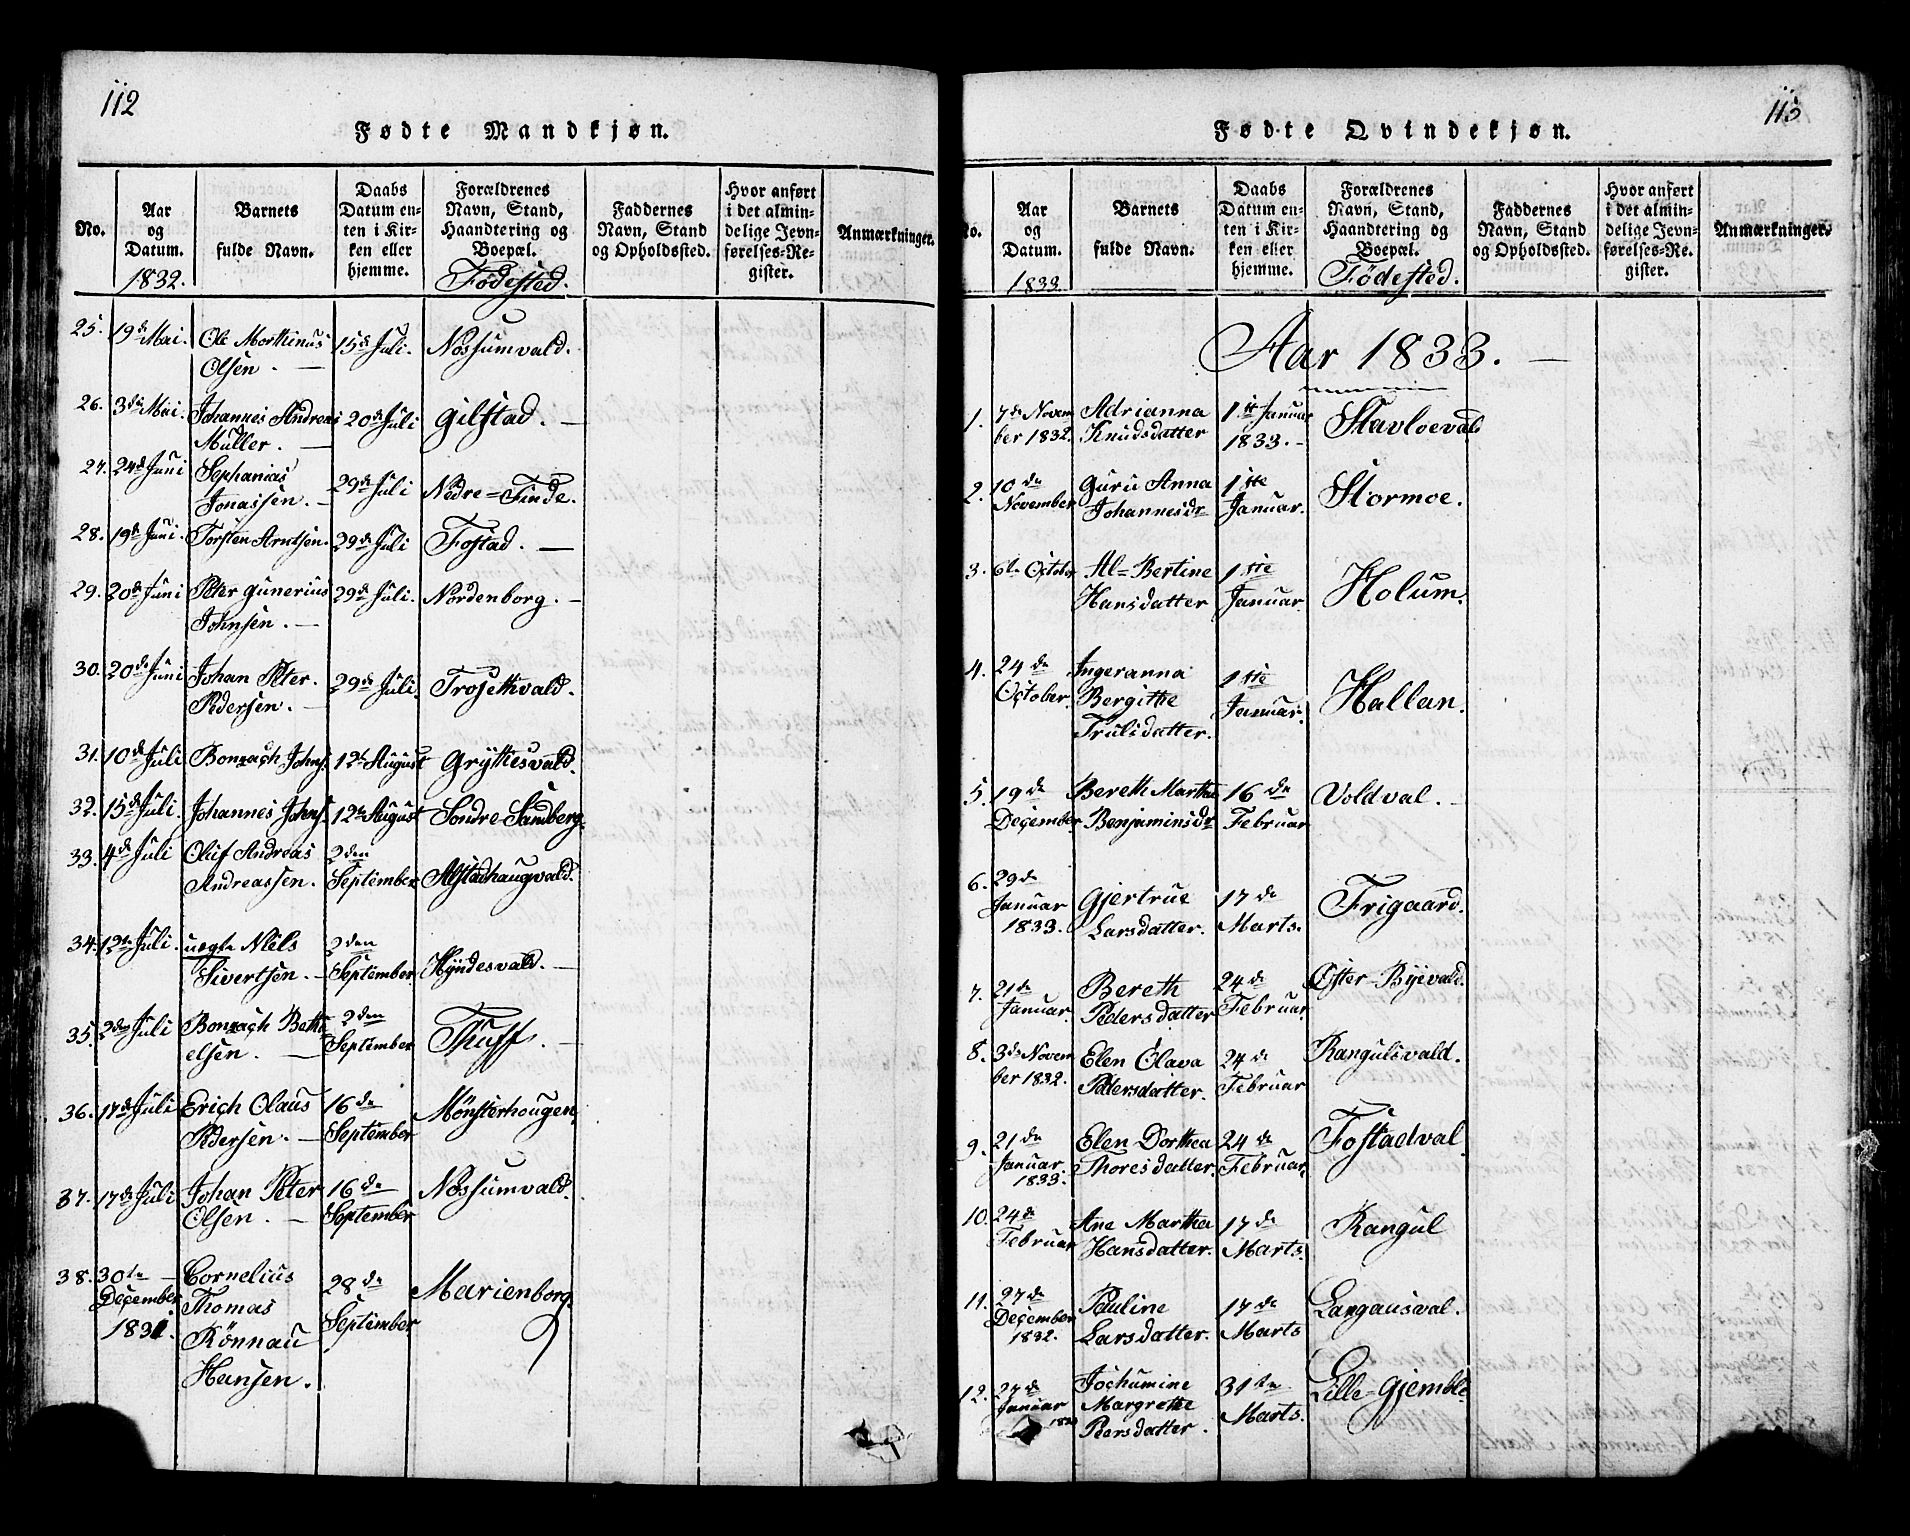 112
Fødte Mandkjøn.
No.
Aar og Datum.
1832.
Barnets fulde Navn.
Daabs Datum enten i Kirken eller hjemme.
Forældrenes Navn, Stand, Haandtering og Boepæl.
Fødested.
Faddernes Navn, Stand og Opholdssted.
Hvor anført i det almindelige Jevnførelses-Register.
Anmærkninger.
25. 19de Mai. Ole Morthinus 15de Juli. Nossumvald.
Olsen.
26. 3die Mai. Johannes Andreas 20de Juli Gilstad.
Müller.
27. 24de Juni Sephanias 29de Juli Nedre=Tinde.
Jonassen.
28. 19de Juni. Torsten Arntsen. 29de Juli Fostad.
29. 20de Juni Peter Gunerius 29de Juli. Nordenborg.
Johnsen.
30. 20de Juni Johan Peter 29de Juli. Trosethvald.
Pedersen.
31. 10de Juli Bonsach Johns. 12te August Gryttesvald.
32. 15de Juli. Johannes Johns. 12te August Søndre Sundberg.
33. 4de Juli Oluf Andreas 2den
Andreassen. September Alstadhaugvald.
34. 12te Juli. uægte Niels 2den
Sivertsen. September Hyndesvald.
35. 2den Juli Bonsach Beth 2den Thuff.
elsen. September
36. 17de Juli Erich Olaus 16de Mønsterhougen
Pedersen. September
37. 17de Juli Johan Peter 16de Nossumvald.
Olsen. September
38. 30te Cornelius 28de Marienborg.
December Thomas September
1831. Rönnau
Hansen.
113
Fødte Qvindekjøn.
No.
Aar og Datum.
1833
Barnets fulde Navn.
Daabs Datum enten i Kirken eller hjemme.
Forældrenes Navn, Stand, Haandtering og Boepæl.
Fødested.
Faddernes Navn, Stand og Opholdsted.
Hvor anført i det almindelige Jevnførelses-Register.
Anmærkninger.
Aar 1833.
1. 7de Novem Adrianna 1ste Januar Stavloeval.
ber 1832. Knudsdatter 1833.
2. 10de Guru Anna 1ste Stormoe.
November Johannesdr Januar.
3. 6te October Al=Bertine 1ste Holum.
Hansdatter Januar.
4. 24de Ingeranna 1ste Hallan.
October Bergithe Januar.
Trulsdatter.
5. 19de Bereth Martha 16de Voldval.
December Benjaminsdr Februar
6. 29de Gjertrue 17de Frigaard.
Januar Larsdatter. Marts.
1833.
7. 21de Bereth 24de Öfter-Byevald.
Januar. Pedersdatter Februar.
8. 3de Novem Elen Olava 24de Rangulsvald.
ber 1832. Pedersdatter. Februar
9. 21de Elen Dorthea 24de Fostadval
Januar. Thoresdatter. Februar.
1833.
10. 24de Ane Martha 17de Rangul
Februar Hansdatter. Marts.
11. 27de Pauline 17de Langaasval.
December Larsdatter. Marts
1832.
12. 27de Jochumine 31te Lille-Gjemble
Januar Margrethe Marts.
Peersdatter.